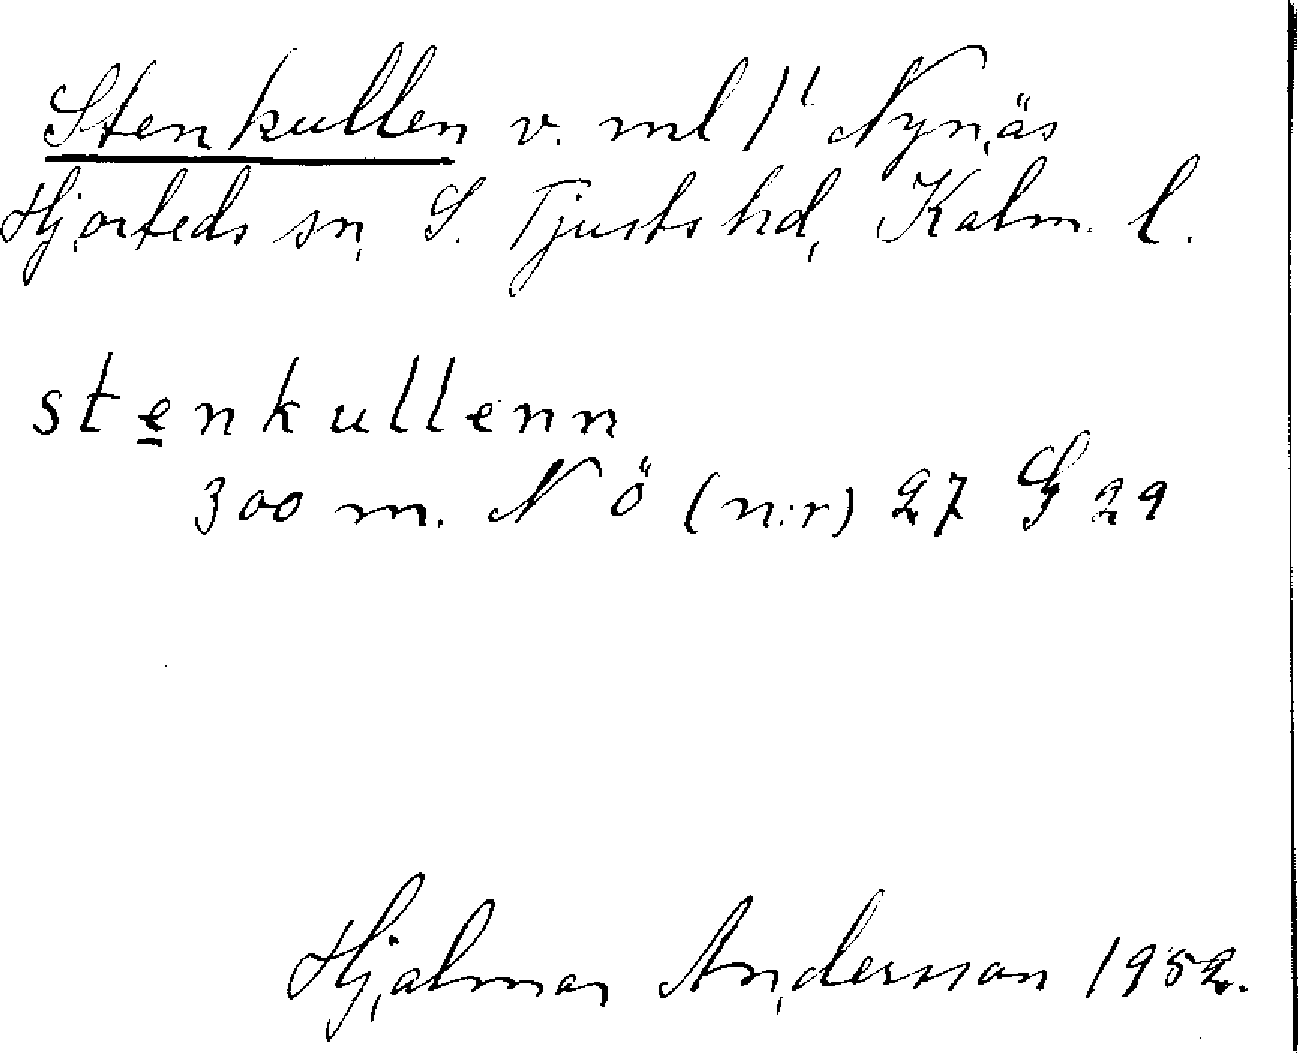 Stenkullen v. ml 1¹ Nynäs
Hjorteds sn, S. Tjusts hd, Kalm. l.
stenkullenn
300 m. N ö (n:r) 27 S 29
Hjalmar Andersson 1952.